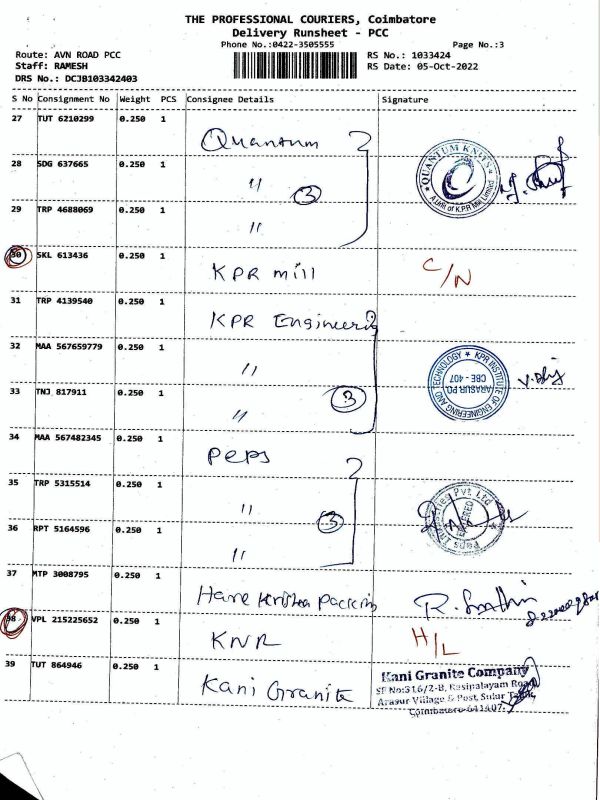 THE PROFESSIONAL COURIERS, Coimbatore
Delivery Runsheet - PCC
Phone No.:0422-3505555 Page No.:3
Route: AVN ROAD PCC RS No.: 1033424
Staff: RAMESH RS Date: 05-Oct-2022
DRS No.: DCJB103342403
S No Consignment No Weight PCS Consignee Details Signature
27 TUT 6210299 0.250 1 Quantum
28 SDG 637665 0.250 1 〃 3
29 TRP 4688069 0.250 1 〃
QUANTUM KNITS
A Unit of K.P.R Mill Limited
30 SKL 613436 0.250 1 KPR mill C/N
31 TRP 4139540 0.250 1 KPR Engineering
32 MAA 567659779 0.250 1 〃
33 TNJ 817911 0.250 1 〃 3
KPR INSTITUTE OF ENGINEERING AND TECHNOLOGY
ARASUR PO.
CBE - 407
34 MAA 567482345 0.250 1 Peps
35 TRP 5315514 0.250 1 〃
36 RPT 5164596 0.250 1 〃 3
Pvt Ltd
37 MTP 3008795 0.250 1 Hare Krishna Packing R.
38 VPL 215225652 0.250 1 KNR H/L
39 TUT 864946 0.250 1 Kani Granite
Kani Granite Company
SF No:316/2-B, Rasipalayam Road,
Arasur Village & Post, Sulur Taluk,
Coimbatore-641407.